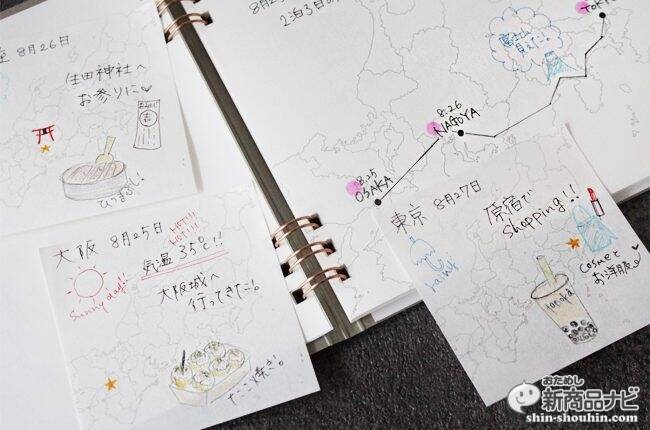 8月26日
住田神社へ
お参りに
吉
ひつまぶし
2泊3日の
TOKYO
富士山
見えた!
8.26
NAGOYA
8.25
OSAKA
大阪 8月25日
HOT!!!
HOT!!!
気温 35℃!!
Sunny day!!
大阪城へ
行ってきたに。
たこ焼き!
東京 8月27日
原宿で
shopping!!
cosmeと
お洋服
tapioka
おためし
新商品ナビ
shin-shouhin.com